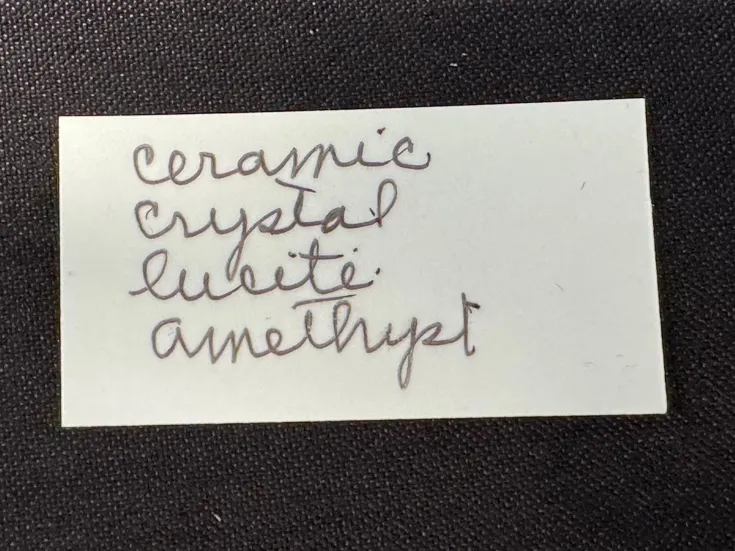 ceramic
crystal
lucite
amethyst